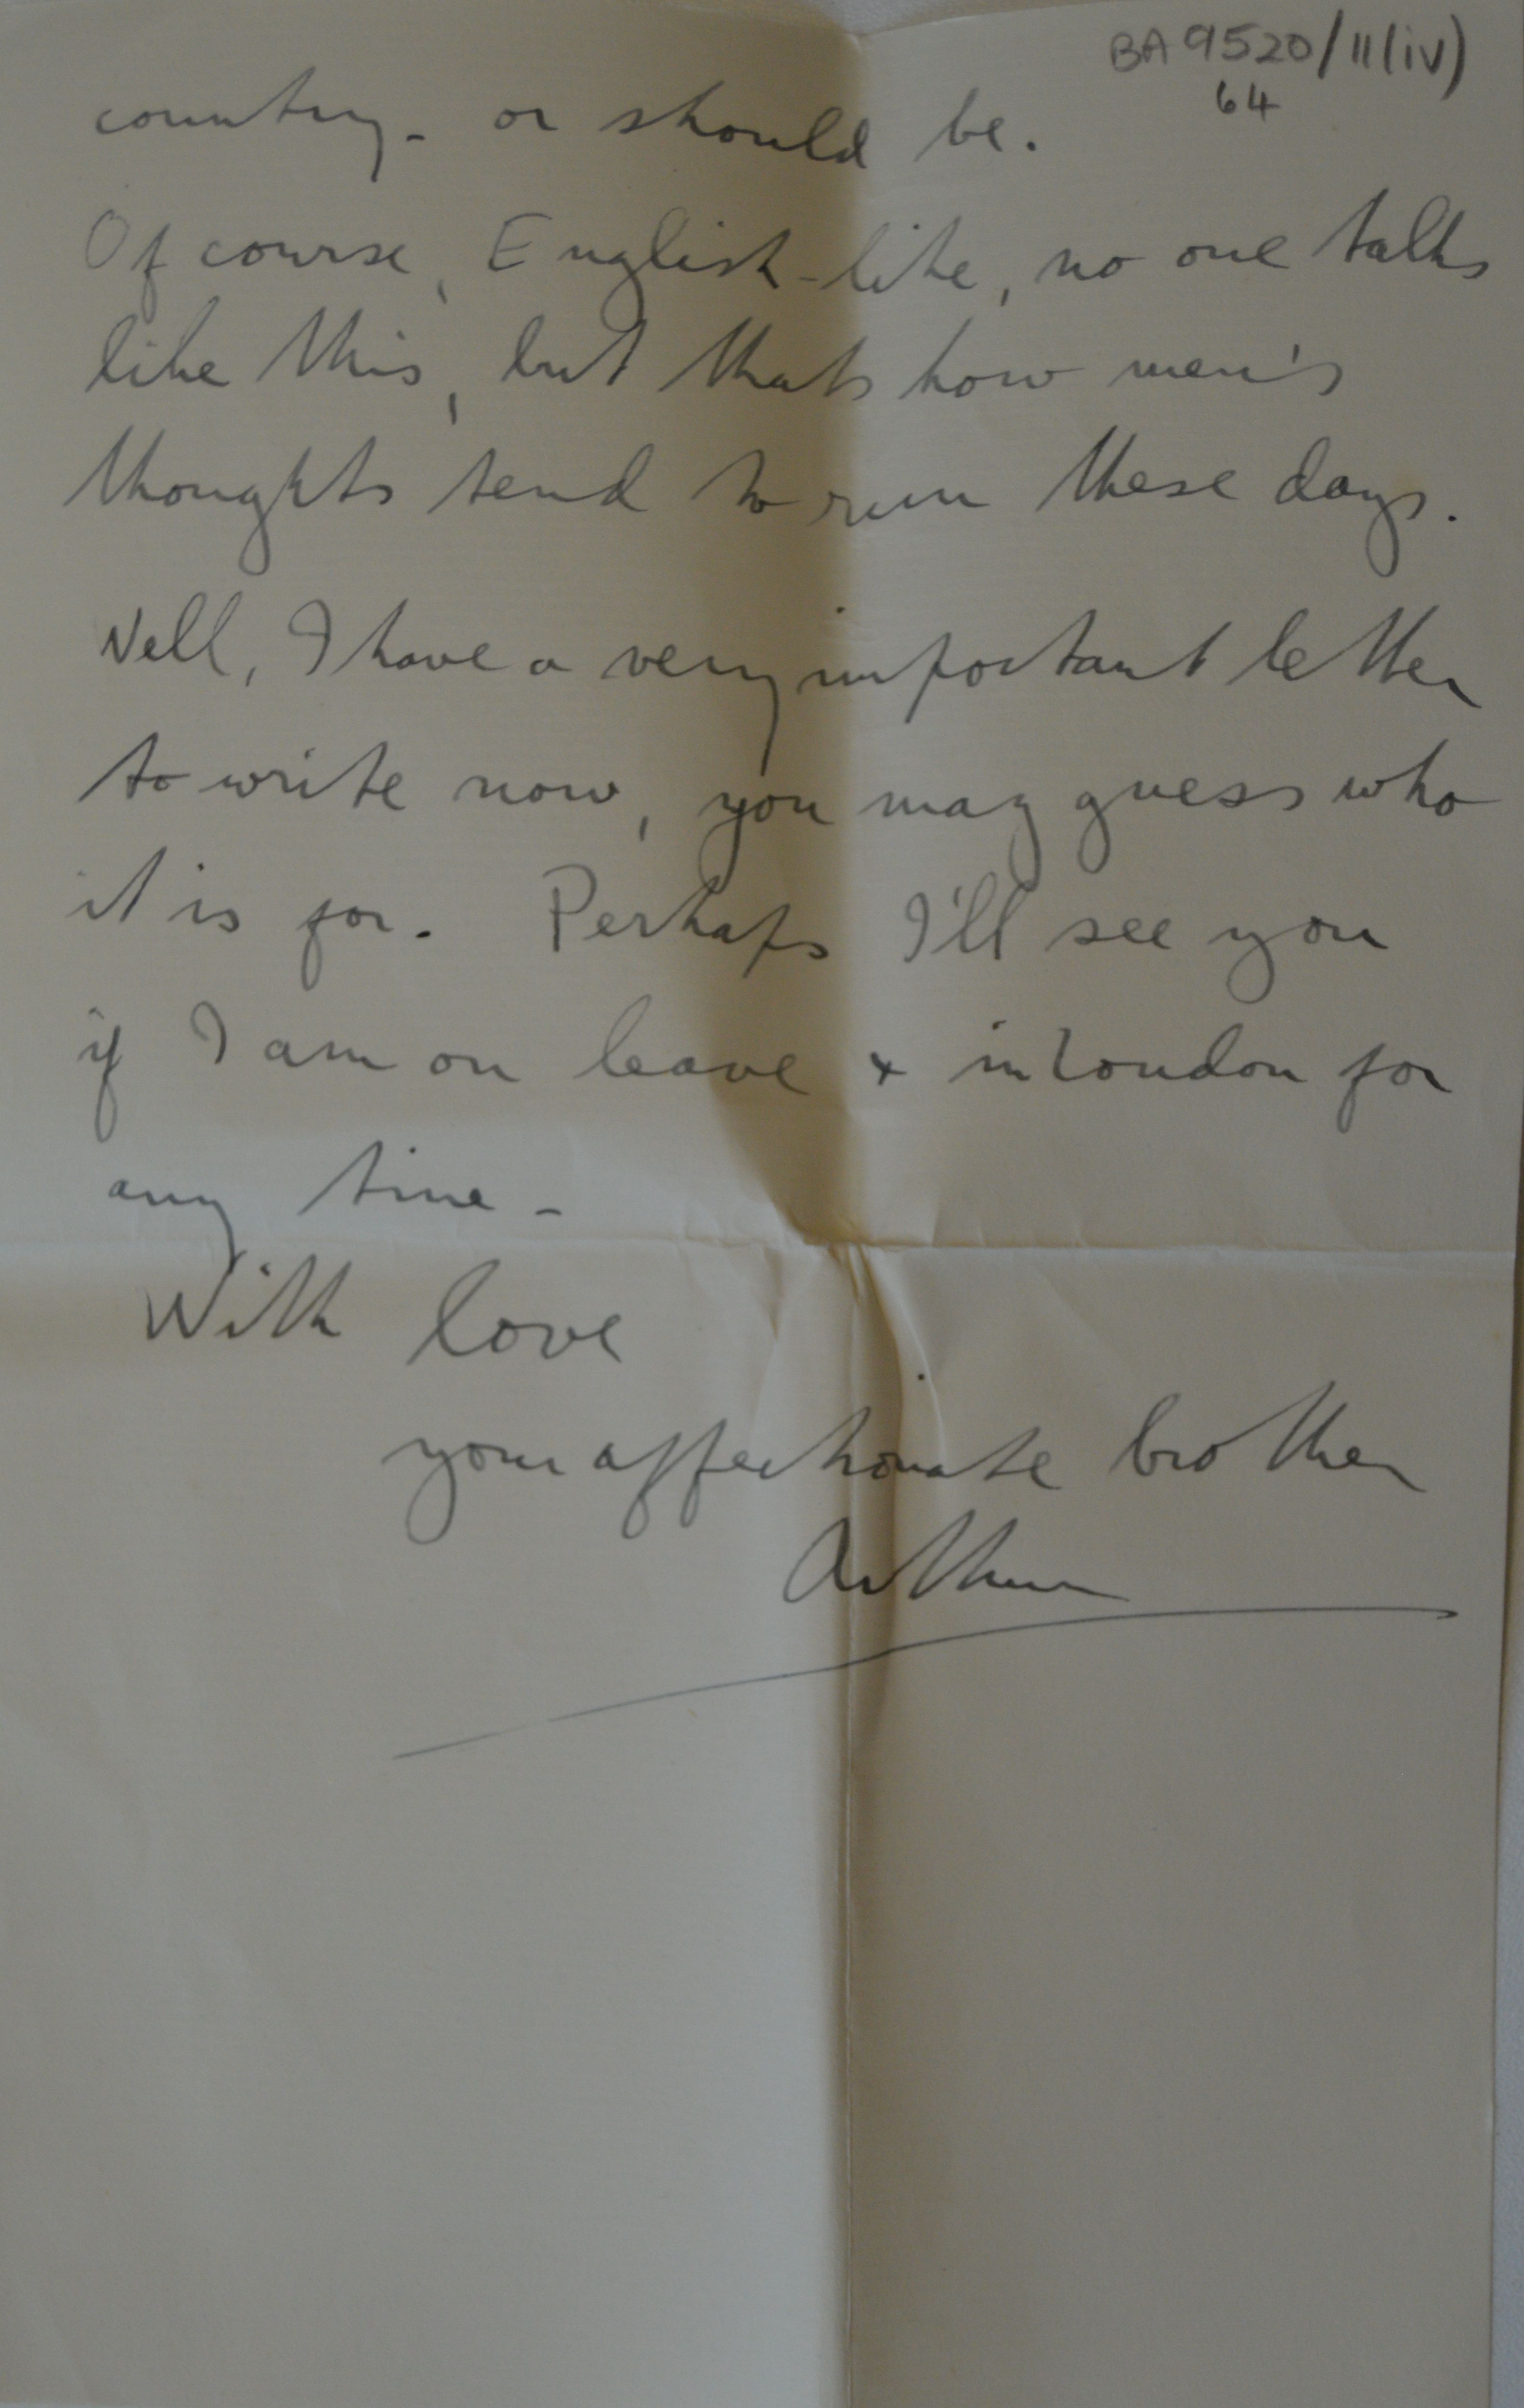 BA 9520/11(iv)
64
country - or should be.
Of course, English-like, no one talks
like this, but thats how men's
thoughts tend to run these days.
Well, I have a very important letter
to write now, you may guess who
it is for. Perhaps I'll see you
if I am on leave + in London for
any time -
With love
your affectionate brother
Arthur